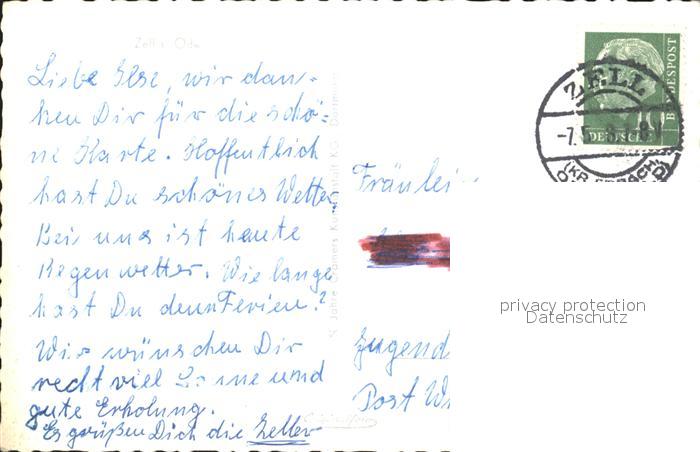 Zell i. Odw.
Liebe Else, wir dan-
ken Dir für die schö-
ne Karte. Hoffentlich
hast Du schönes Wetter.
Bei uns ist heute
Regenwetter. Wie lange
hast Du denn Ferien?
Wir wünschen Dir
recht viel Sonne und
gute Erholung.
Es grüßen Dich die Zeller
Cramers Kunstanstalt KG, Dortmund
Fräulein
Jugend
Post
ZELL
-7.
DEUTSCHE
BUNDESPOST
10
privacy protection
Datenschutz